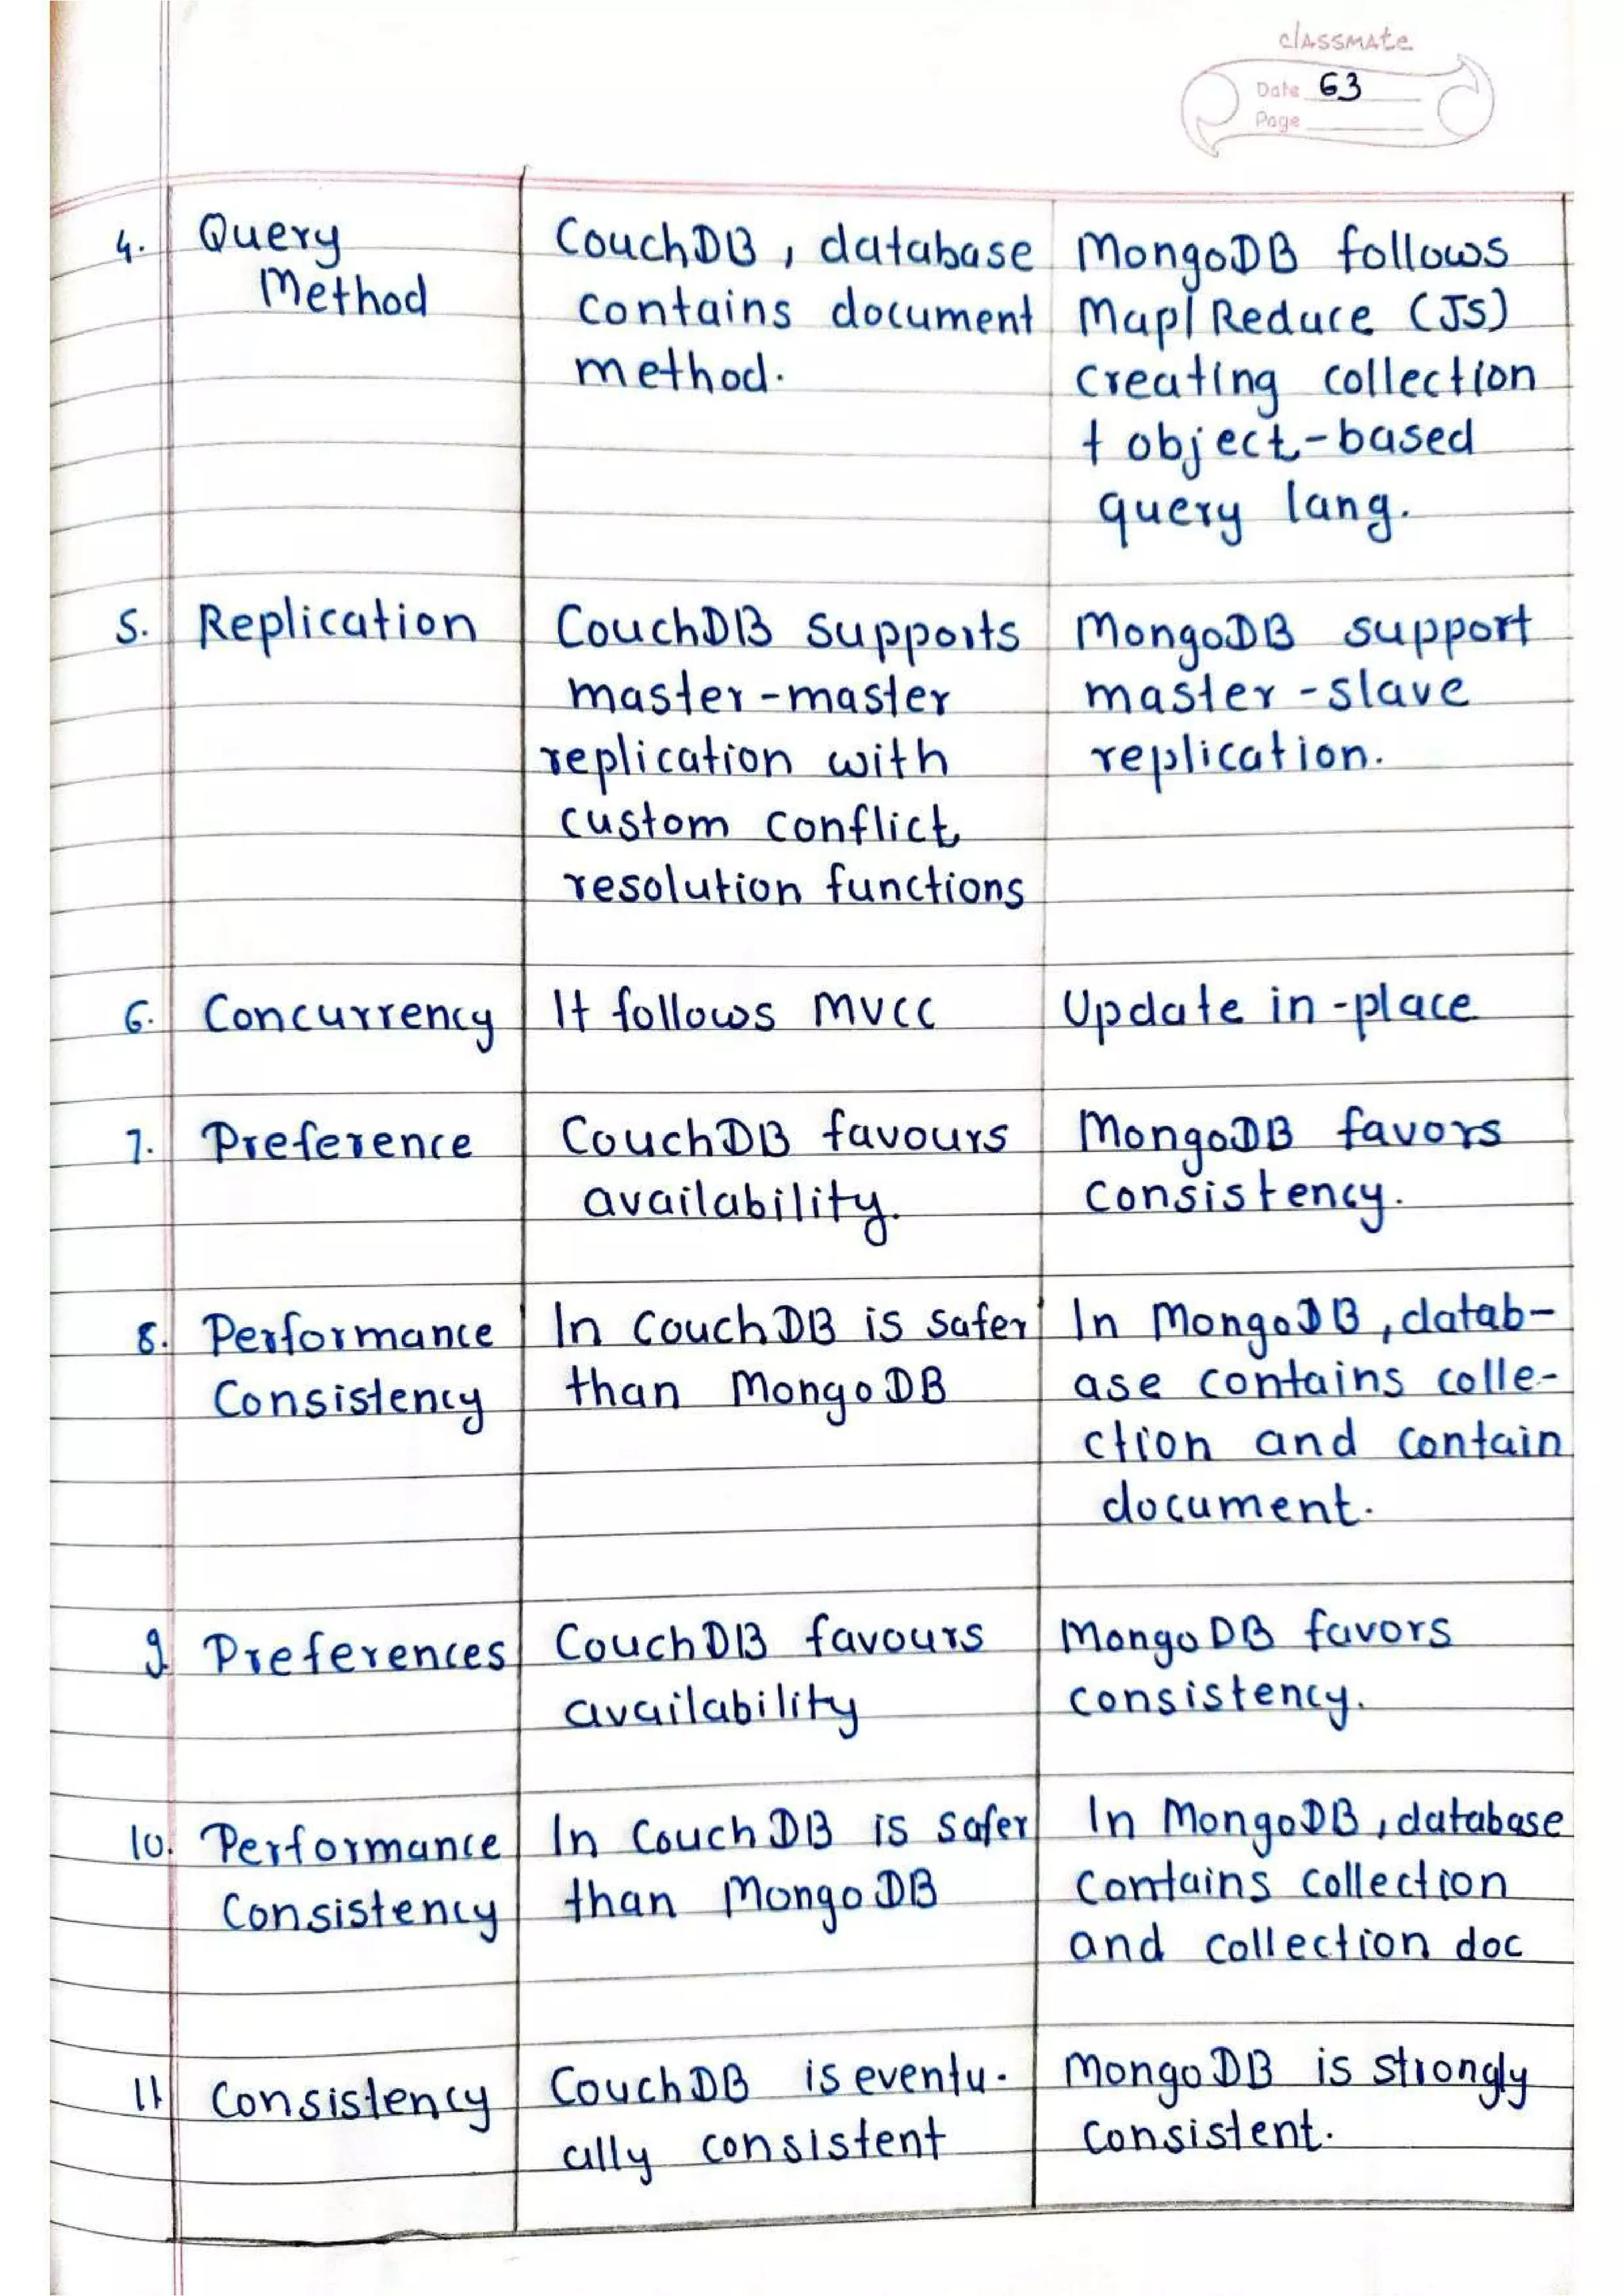 classmate
Date 63
Page
4. Query CouchDB, database MongoDB follows
Method contains document Map/Reduce (JS)
method. creating collection
+ object-based
query lang.
5. Replication CouchDB supports MongoDB support
master-master master-slave
replication with replication.
custom conflict
resolution functions
6. Concurrency It follows MVCC Update in-place
7. Preference CouchDB favours MongoDB favors
availability. consistency.
8. Performance In CouchDB is safer In MongoDB, datab-
Consistency than MongoDB ase contains colle-
ction and contain
document.
9. Preferences CouchDB favours MongoDB favors
availability consistency.
10. Performance In CouchDB is safer In MongoDB, database
Consistency than MongoDB contains collection
and collection doc
11 Consistency CouchDB is eventu- MongoDB is strongly
ally consistent consistent.